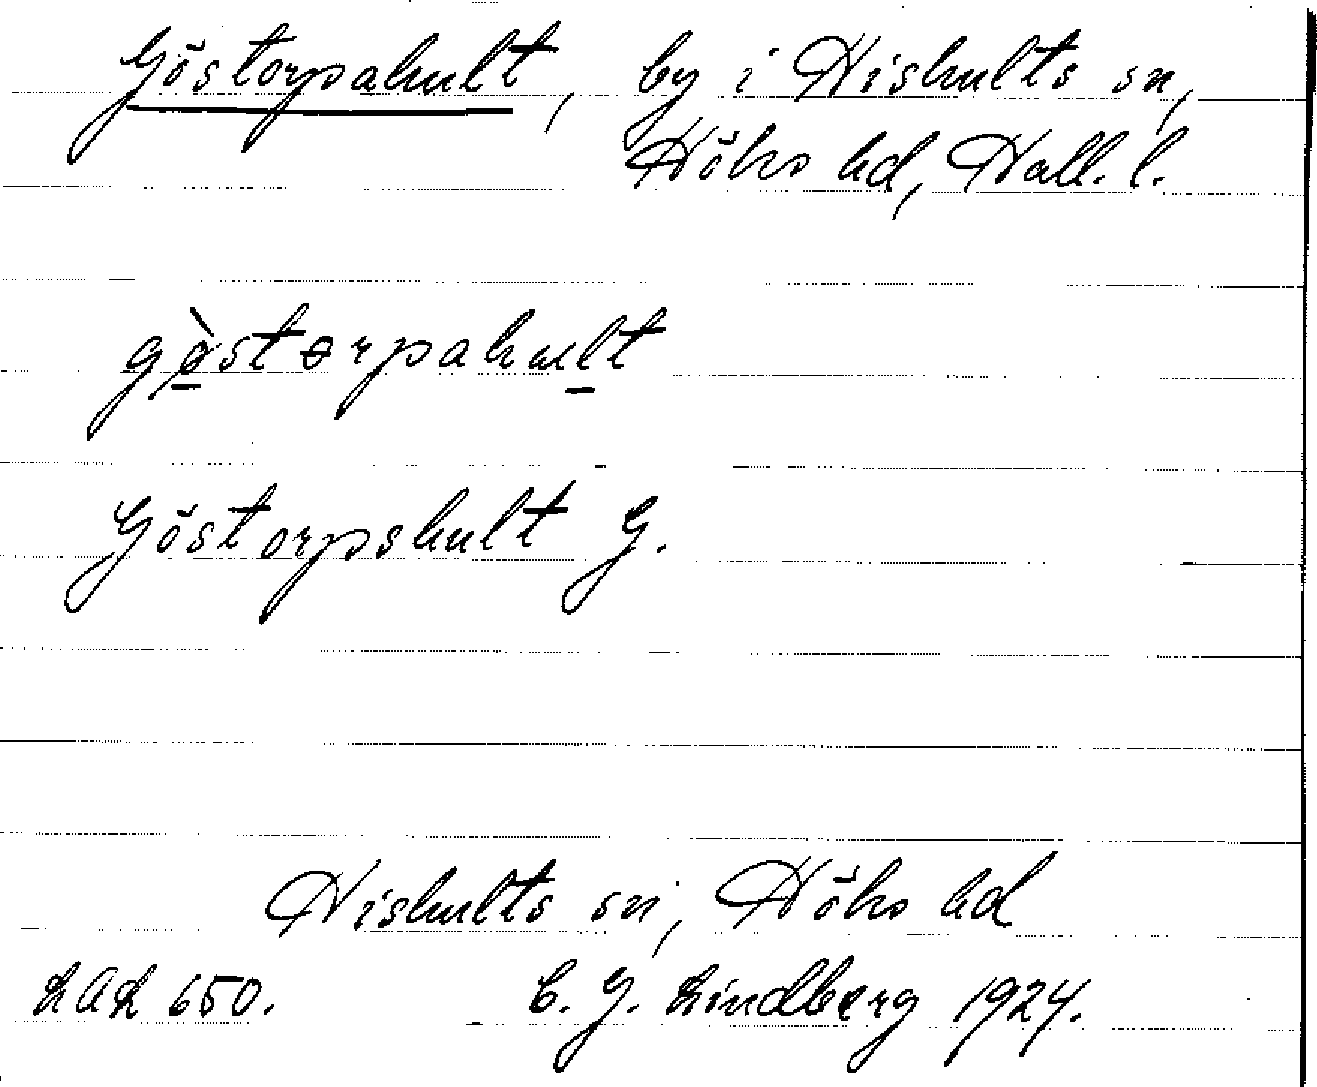 Göstorpahult, by i Hishults sn,
Höks hd, Hall. l.
gø̀stɵrpahult
Göstorpshult G.
Hishults sn, Höks hd
LAL 650. C. G. Lindberg 1924.